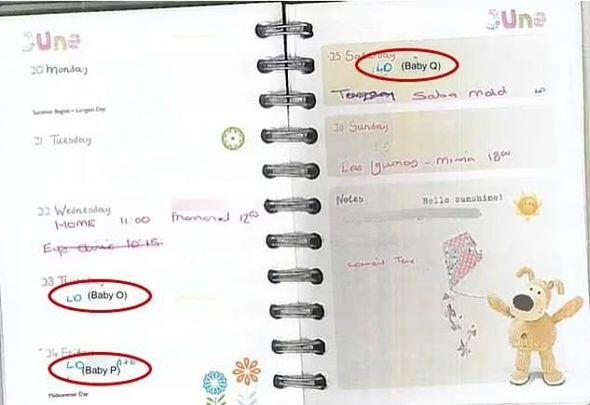 June
20 Monday
Summer Begins – Longest Day
21 Tuesday
22 Wednesday
HOME 11:00 12:00
10:15
23 Thursday
LD (Baby O)
24 Friday
LD (Baby P)
Midsummer Day
June
25 Saturday
LD (Baby Q)
Salsa LD
26 Sunday
Las Iguanas - 18:00
Notes Hello sunshine!